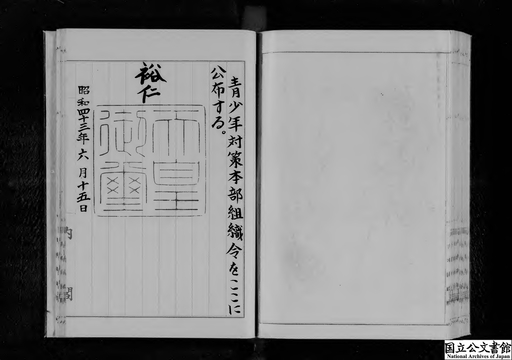 青少年対策本部組織令をここに
公布する。
裕仁
天皇
御璽
昭和四十三年六月十五日
内閣
国立公文書館
National Archives of Japan